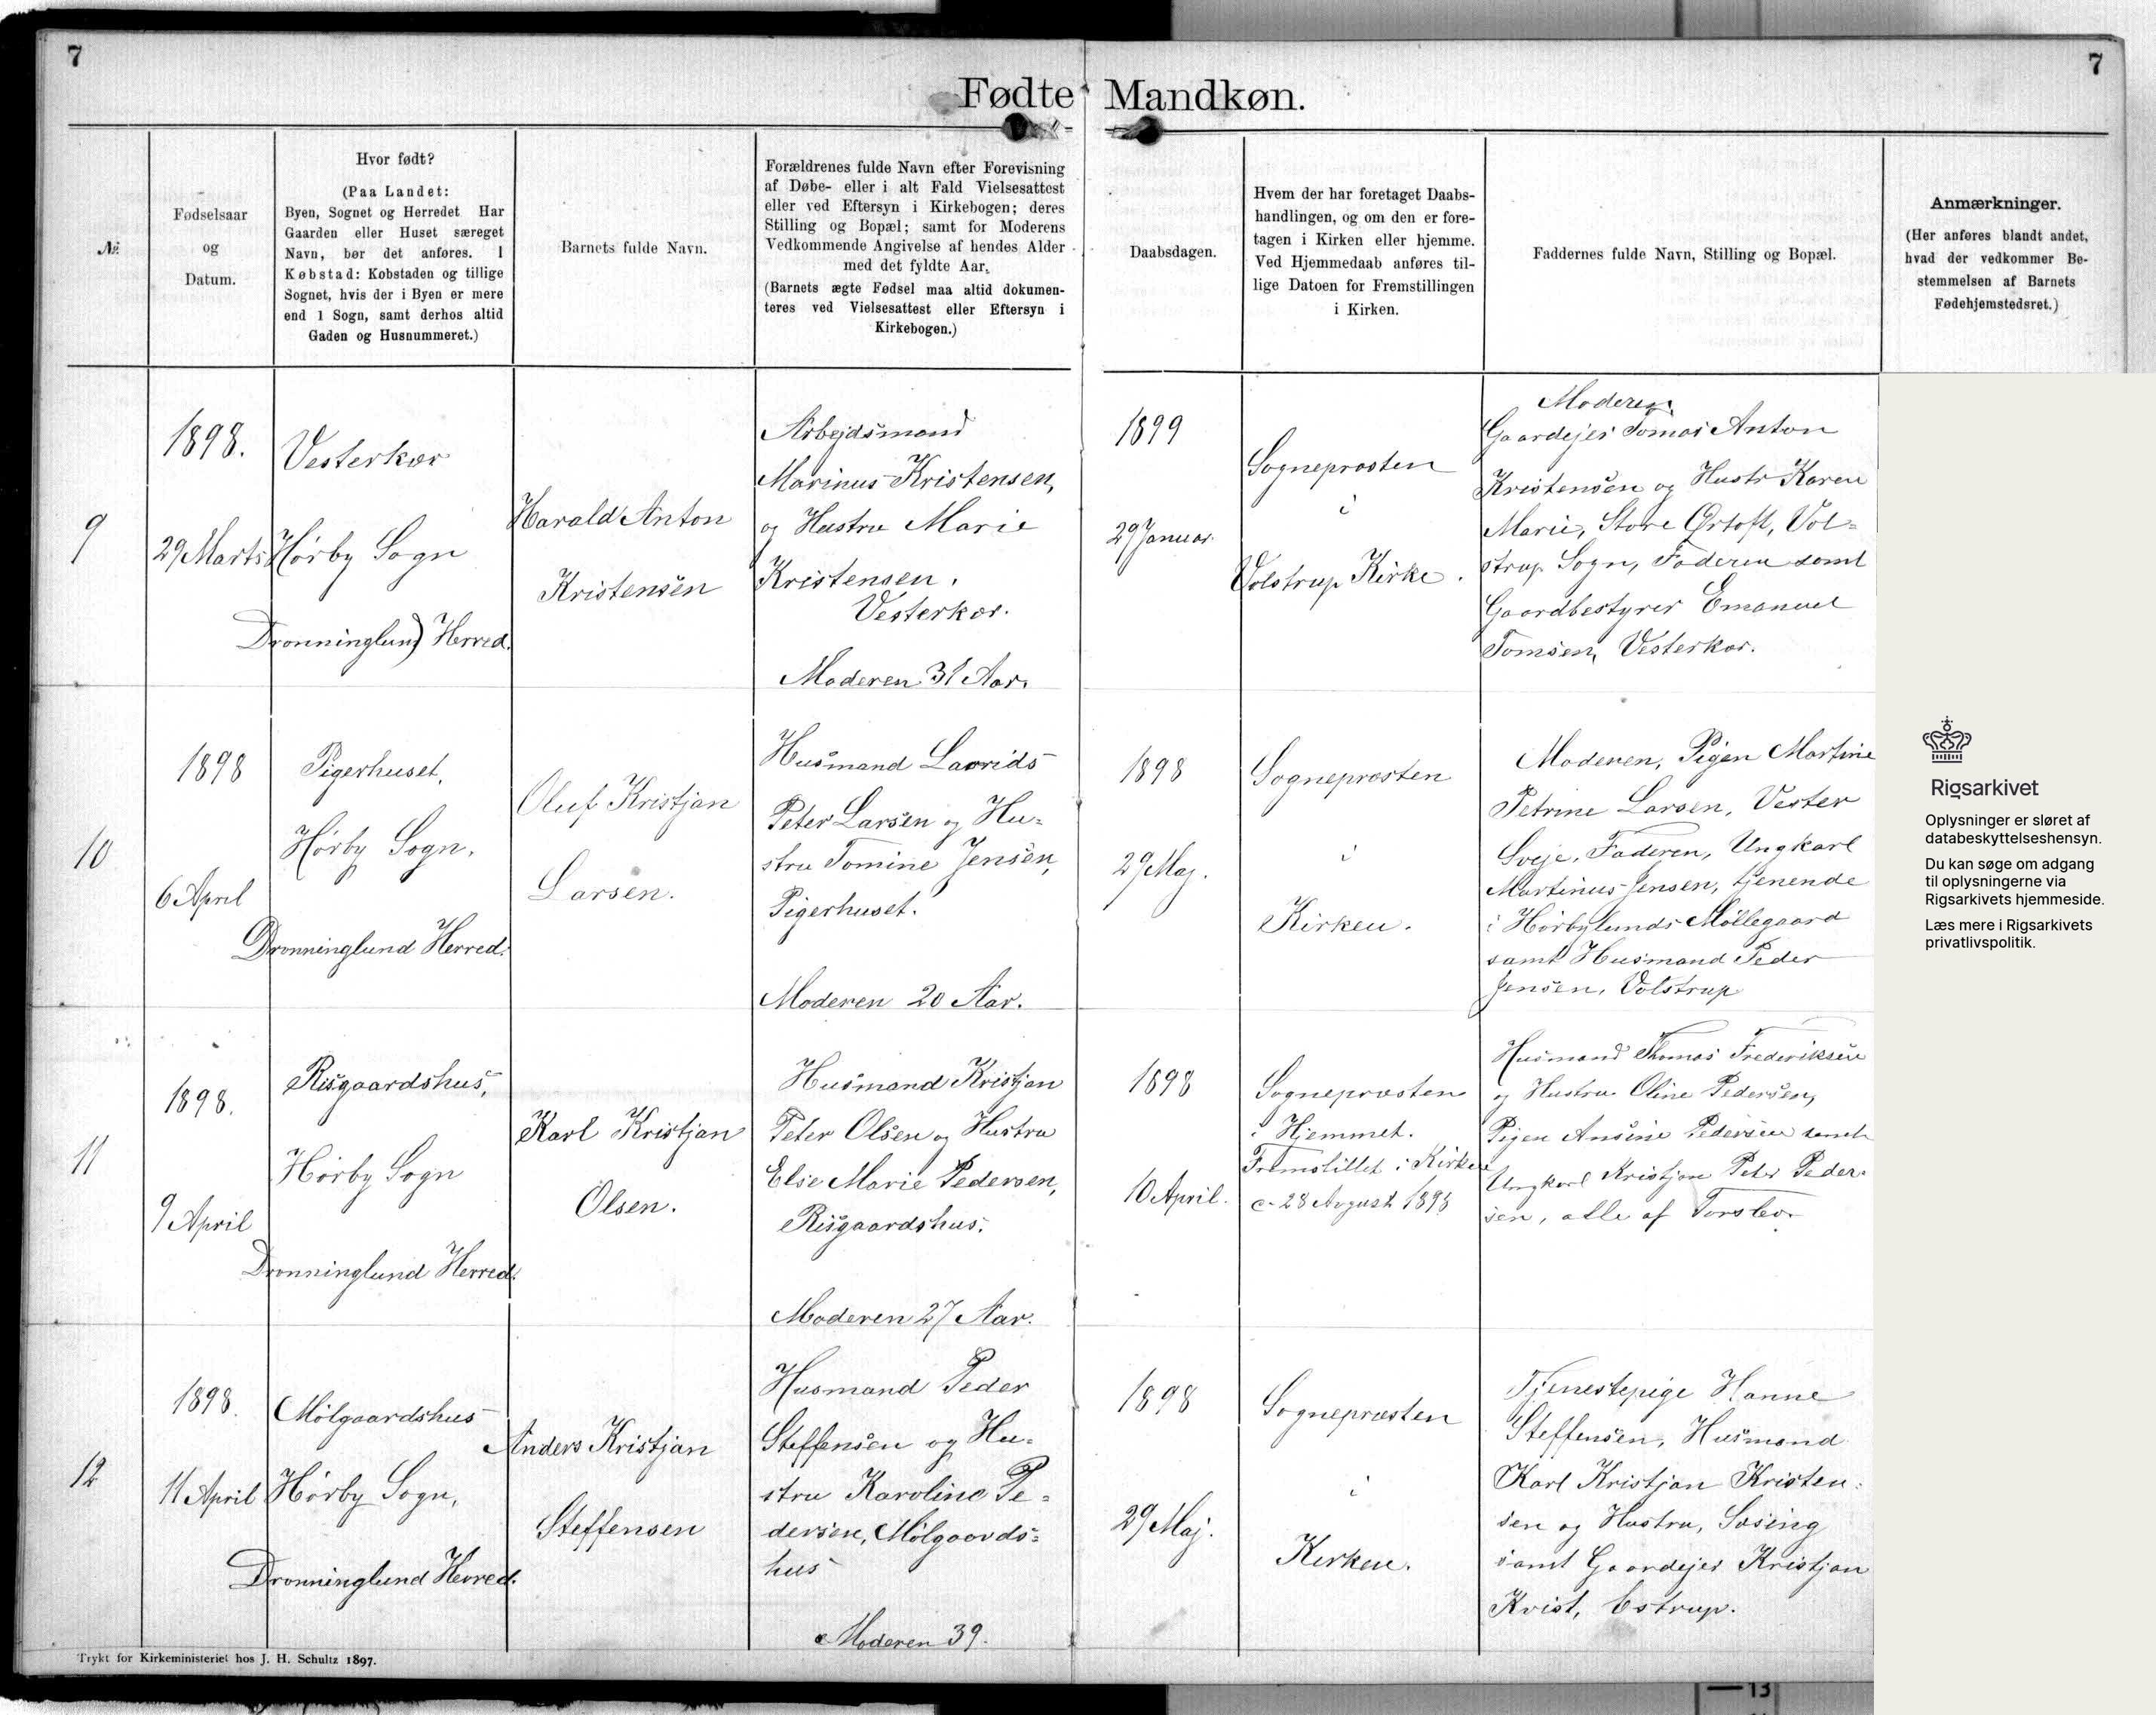 7
7
Fødte Mandkøn.
№
Fødselsaar
og
Datum.
Hvor født?
(Paa Landet:
Byen, Sognet og Herredet Har
Gaarden eller Huset særeget
Navn, bør det anføres. I
Købstad: Købstaden og tillige
Sognet, hvis der i Byen er mere
end 1 Sogn, samt derhos altid
Gaden og Husnummeret.)
Barnets fulde Navn.
Forældrenes fulde Navn efter Forevisning
af Døbe- eller i alt Fald Vielsesattest
eller ved Eftersyn i Kirkebogen; deres
Stilling og Bopæl; samt for Moderens
Vedkommende Angivelse af hendes Alder
med det fyldte Aar.
(Barnets ægte Fødsel maa altid dokumen-
teres ved Vielsesattest eller Eftersyn i
Kirkebogen.)
Daabsdagen.
Hvem der har foretaget Daabs-
handlingen, og om den er fore-
tagen i Kirken eller hjemme.
Ved Hjemmedaab anføres til-
lige Datoen for Fremstillingen
i Kirken.
Faddernes fulde Navn, Stilling og Bopæl.
Anmærkninger.
(Her anføres blandt andet,
hvad der vedkommer Be-
stemmelsen af Barnets
Fødehjemstedsret.)
9
1898.
29 Marts
Vesterkær
Hørby Sogn
Dronninglund Herred.
Harald Anton
Kristensen
Arbejdsmand
Marinus Kristensen,
og Hustru Marie
Kristensen,
Vesterkær.
Moderen 31 Aar.
1899
29 Januar.
Sognepræsten
i
Volstrup Kirke.
Moderen,
Gaardejer Tomas Anton
Kristensen og Hustr Karen
Marie, Store Ørtoft, Vol=
strup Sogn, Faderen samt
Gaardbestyrer Emanuel
Tomsen, Vesterkær.
10
1898
6 April
Pigerhuset,
Hørby Sogn,
Dronninglund Herred.
Oluf Kristjan
Larsen.
Husmand Laurids
Peter Larsen og Hu=
stru Tomine Jensen,
Pigerhuset.
Moderen 20 Aar.
1898
29 Maj.
Sognepræsten
i
Kirken.
Moderen, Pigen Martine
Petrine Larsen, Vester
Sveje, Faderen, Ungkarl
Martinus Jensen, tjenende
i Hørbylunds Møllegaard
samt Husmand Peder
Jensen, Volstrup
11
1898.
9 April
Risgaardshus,
Hørby Sogn
Dronninglund Herred.
Karl Kristjan
Olsen.
Husmand Kristjan
Peter Olsen og Hustru
Else Marie Pedersen,
Risgaardshus.
Moderen 27 Aar.
1898
10 April.
Sognepræsten
i Hjemmet.
Fremstillet i Kirken
28 August 1898
Husmand Thomas Frederiksen
og Hustru Oline Pedersen,
Pigen Ansine Pedersen samt
Ungkarl Kristjan Peter Peder=
sen, alle af
12
1898.
11 April
Mølgaardshus
Hørby Sogn,
Dronninglund Herred.
Anders Kristjan
Steffensen
Husmand Peder
Steffensen og Hu=
stru Karoline Pe=
dersen, Mølgaards=
hus
Moderen 39.
1898
29 Maj.
Sognepræsten
i
Kirken.
Tjenestepige Hanne
Steffensen, Husmand
Karl Kristjan Kristen=
sen og Hustru, Søsing
samt Gaardejer Kristjan
Kvist, Estrup.
Trykt for Kirkeministeriet hos J. H. Schultz 1897.
Rigsarkivet
Oplysninger er sløret af
databeskyttelseshensyn.
Du kan søge om adgang
til oplysningerne via
Rigsarkivets hjemmeside.
Læs mere i Rigsarkivets
privatlivspolitik.
13